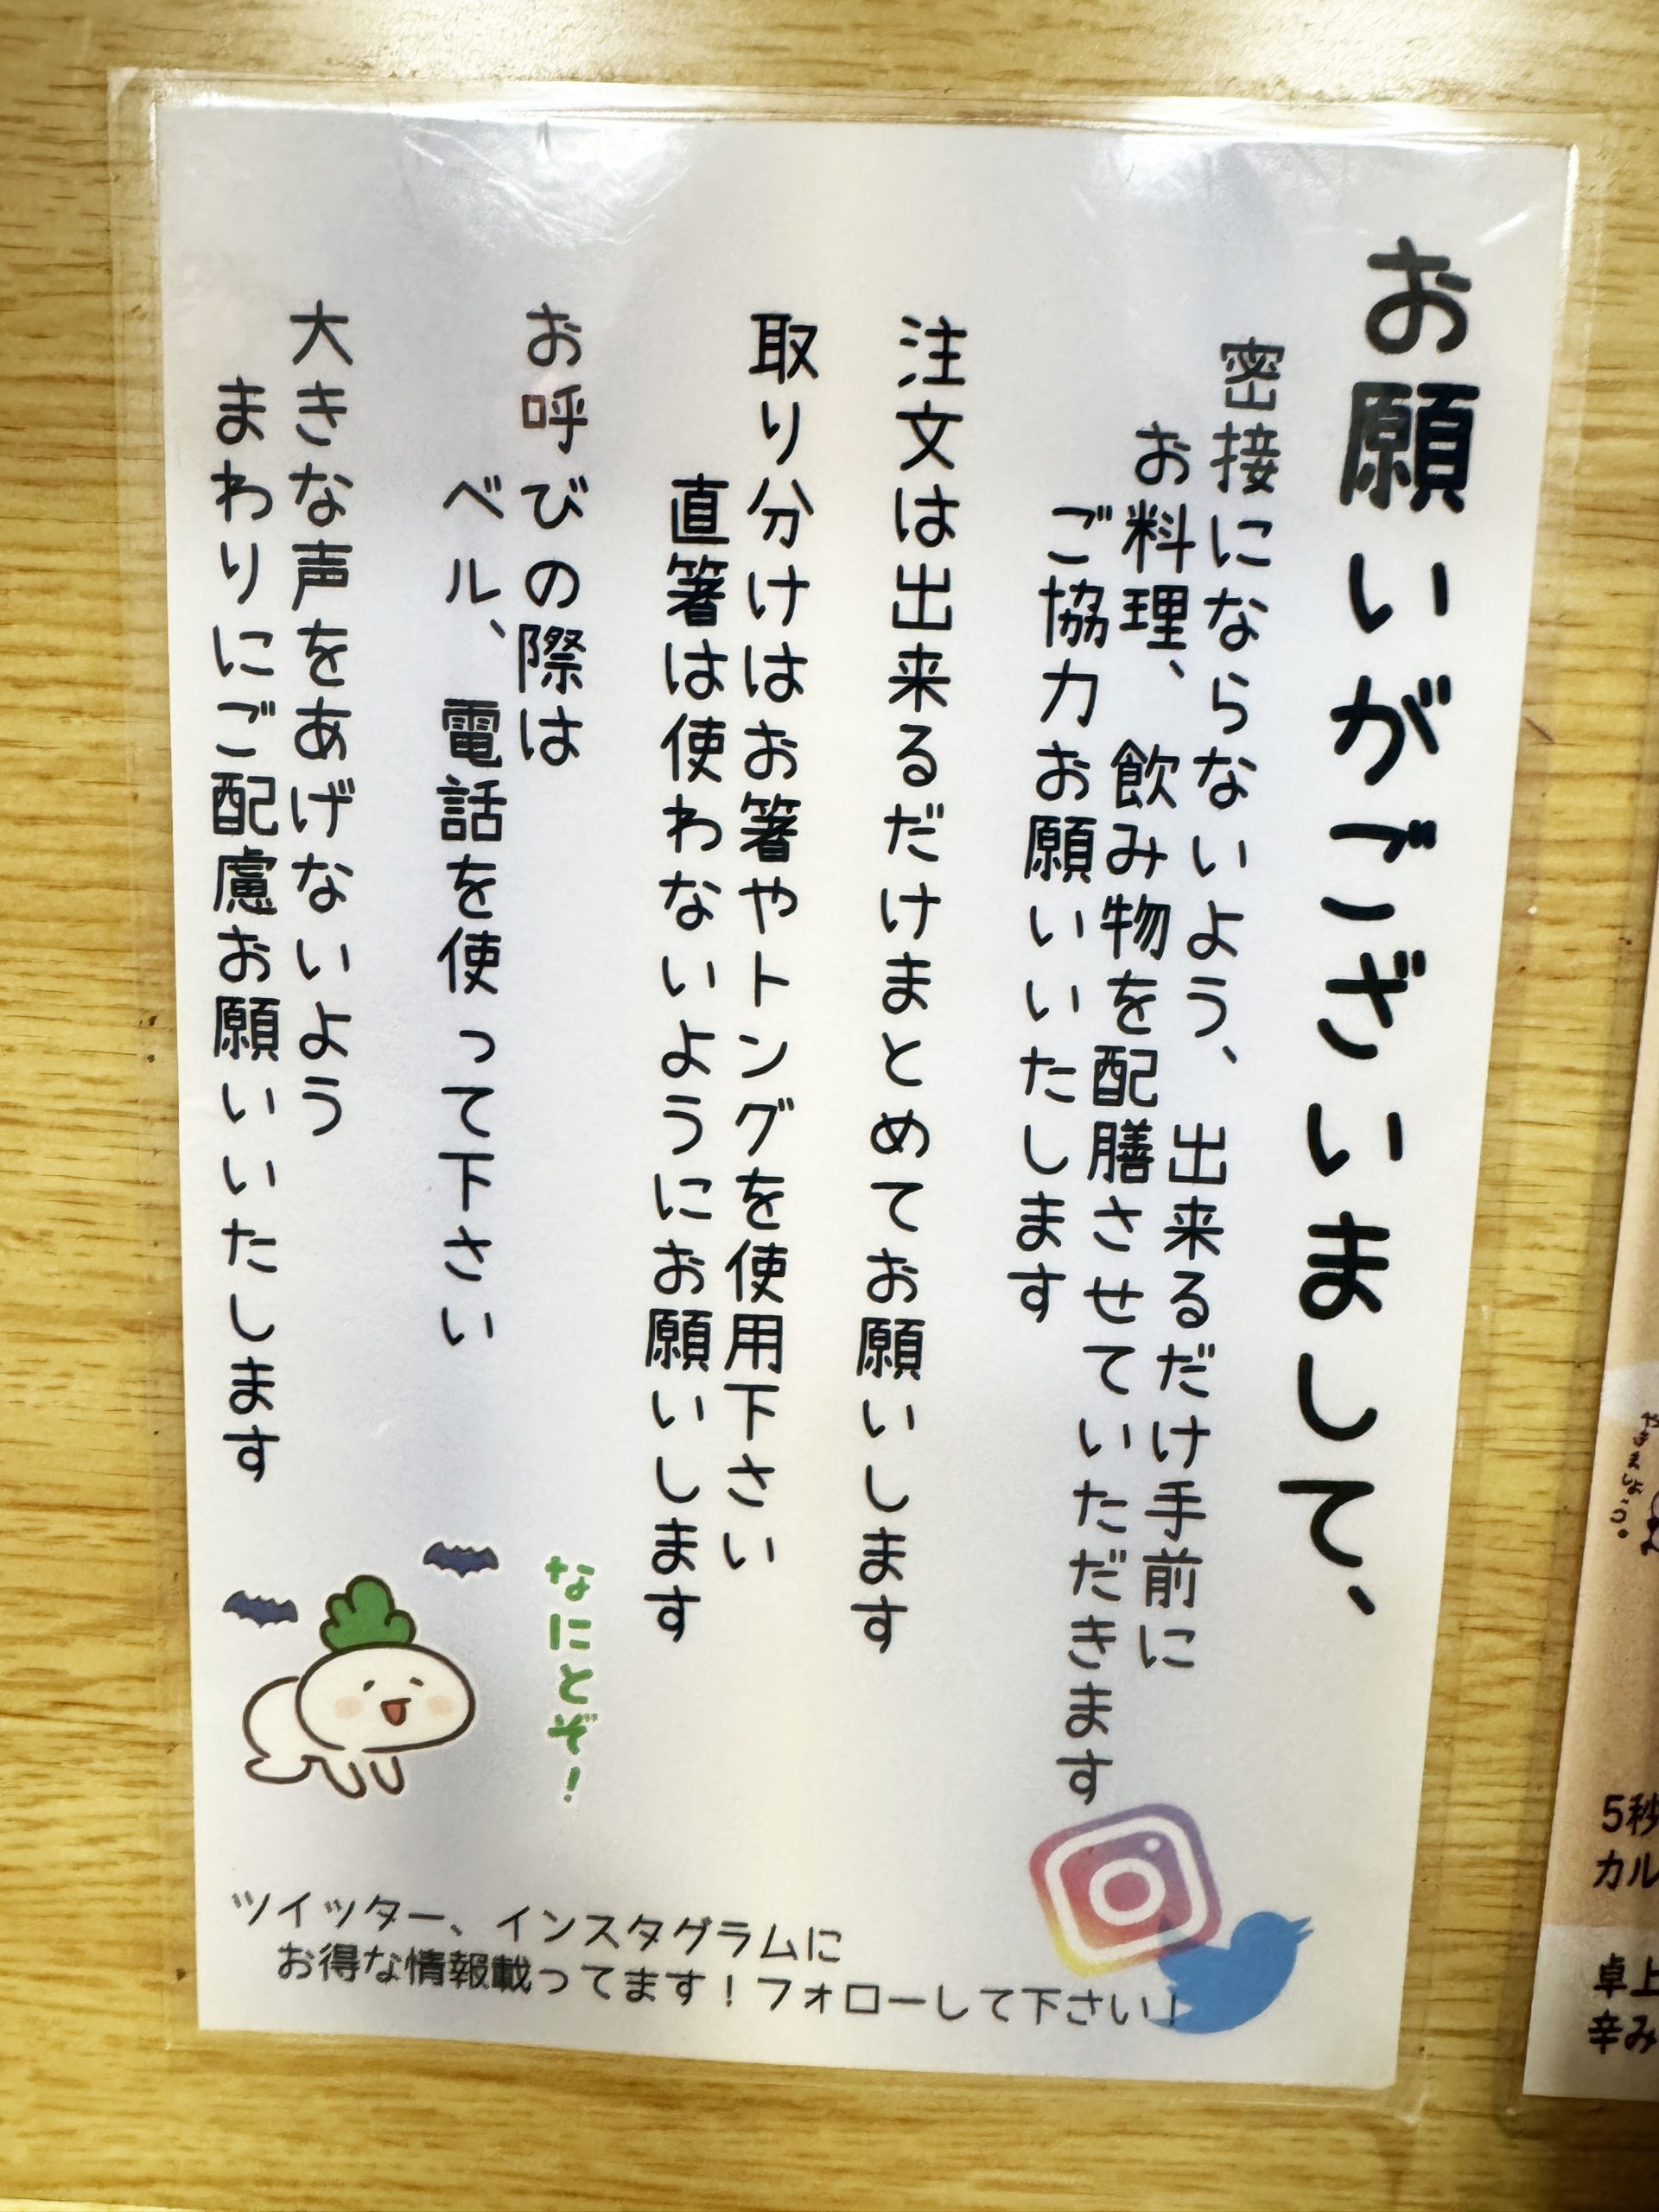 お願いがございまして、
密接にならないよう、出来るだけ手前に
お料理、飲み物を配膳させていただきます
ご協力お願いいたします
注文は出来るだけまとめてお願いします
取り分けはお箸やトングを使用下さい
直箸は使わないようにお願いします
お呼びの際は
ベル、電話を使って下さい
大きな声をあげないよう
まわりにご配慮お願いいたします
なにとぞ!
ツイッター、インスタグラムに
お得な情報載ってます!フォローして下さい♩
5秒
カル
卓上
辛み